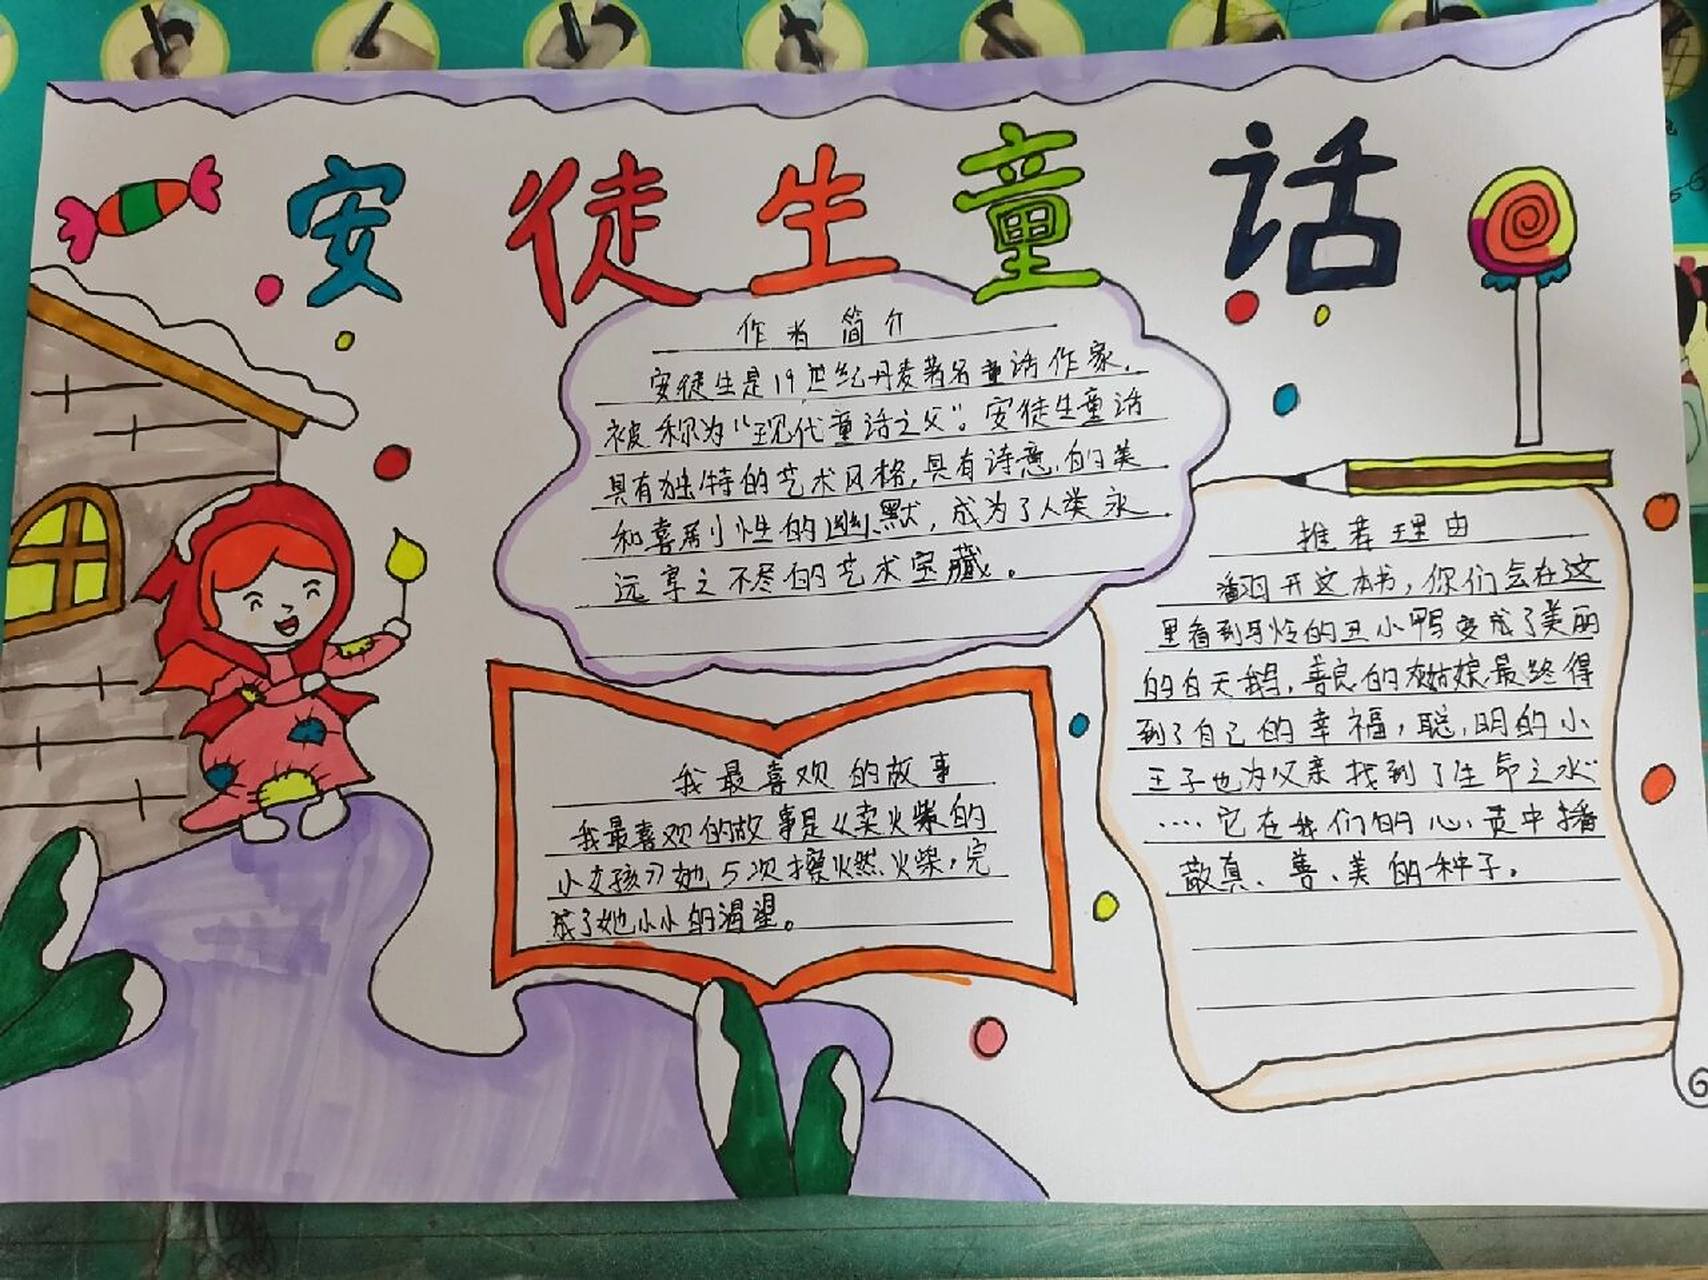 安徒生童话
作者简介
安徒生是19世纪丹麦著名童话作家,
被称为“现代童话之父”。安徒生童话
具有独特的艺术风格,具有诗意的美
和喜剧性的幽默,成为了人类永
远享之不尽的艺术宝藏。
我最喜欢的故事
我最喜欢的故事是《卖火柴的
小女孩》她5次擦燃火柴,完
成了她小小的渴望。
推荐理由
翻开这本书,你们会在这
里看到可怜的丑小鸭变成了美丽
的白天鹅,善良的灰姑娘最终得
到了自己的幸福,聪明的小
王子也为父亲找到了生命之水
····它在我们的心灵中播
散真、善、美的种子。